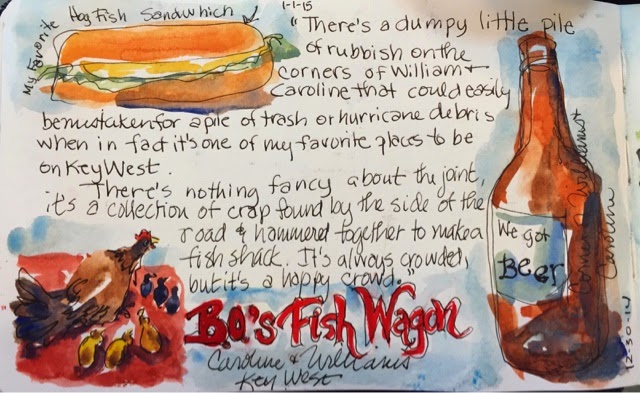 My Favorite
Hog Fish Sandwhich
1-1-15
"There's a dumpy little pile
of rubbish on the
corners of William +
Caroline that could easily
be mistaken for a pile of trash or hurricane debris
when in fact it's one of my favorite places to be
on Key West.
There's nothing fancy about the joint,
it's a collection of crap found by the side of the
road & hammered together to make a
fish shack. It's always crowded,
but it's a happy crowd."
We got
Beer
Corner of Williams +
Caroline
B.O.'s Fish Wagon
Caroline & Williams
Key West
12-30-14